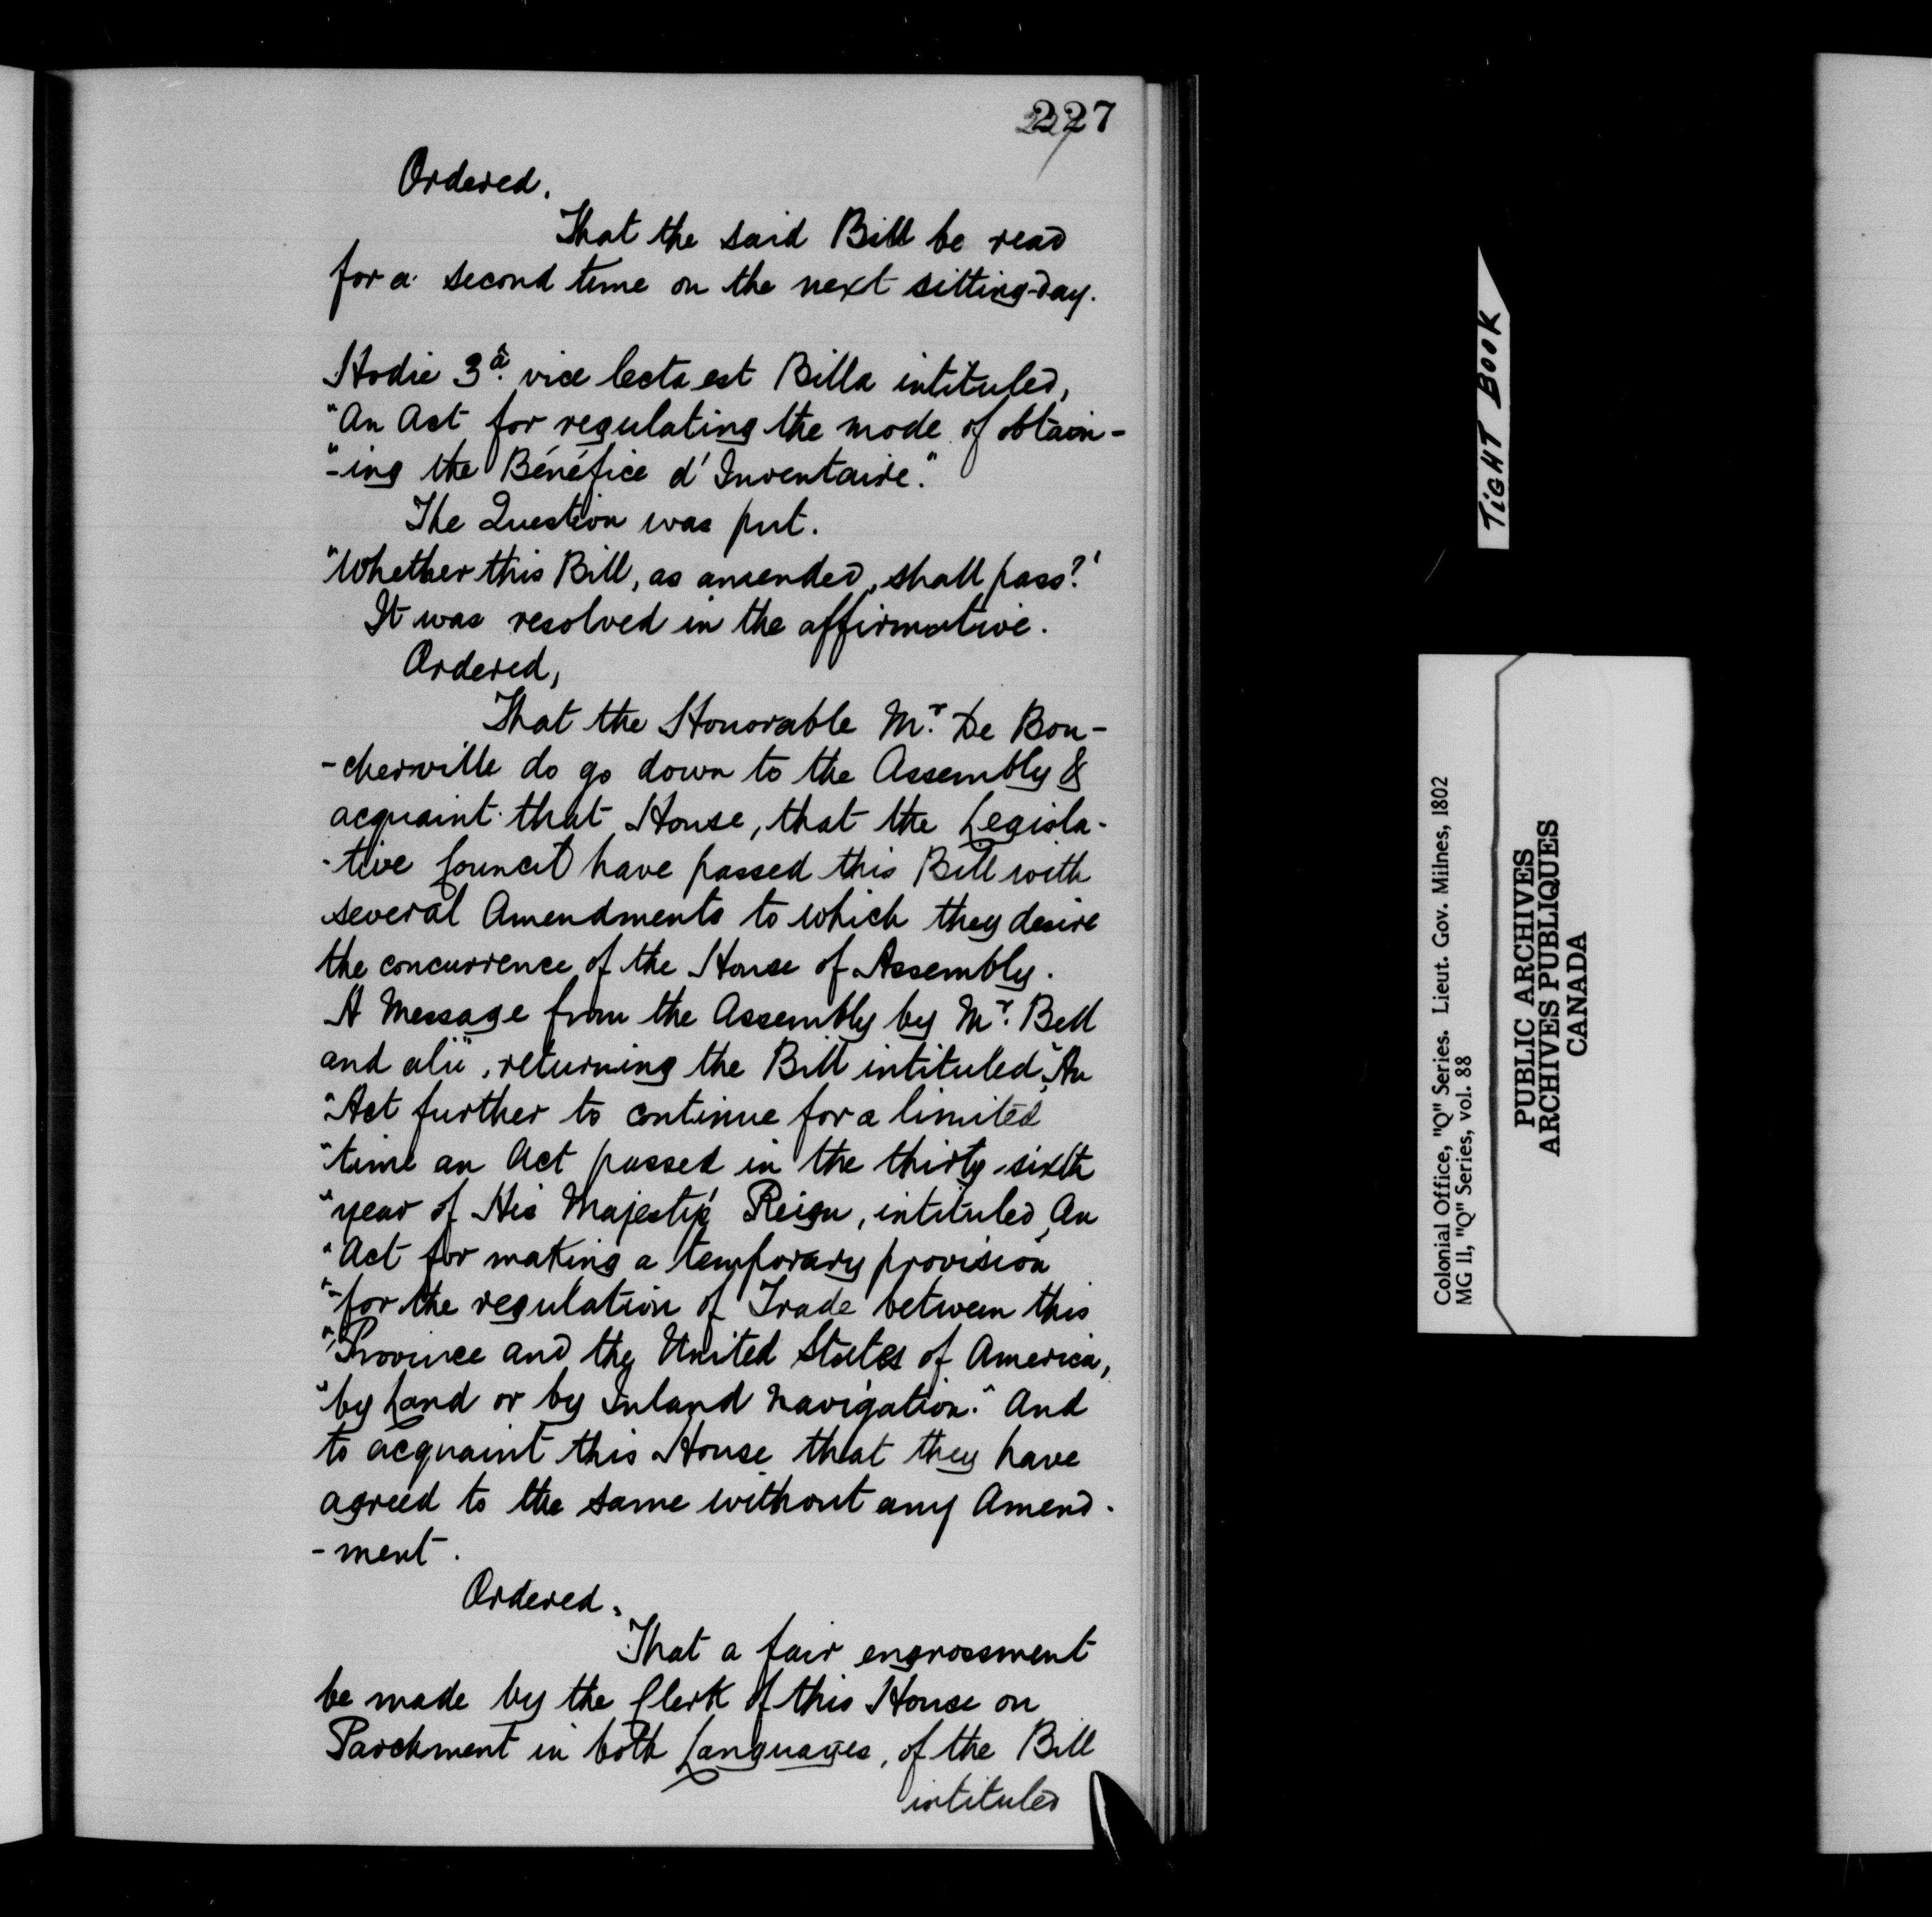 227
Ordered.
That the said Bill be read
for a second time on the next sitting-day.
Hodie 3ª. vice lecta est Billa intituled,
"An Act for regulating the mode of obtain-
"-ing the Bénéfice d'Inventaire."
The Question was put.
"Whether this Bill, as amended, shall pass?"
It was resolved in the affirmative.
Ordered,
That the Honorable Mr. De Bou-
-cherville do go down to the Assembly &
acquaint that House, that the Legisla-
-tive Council have passed this Bill with
several Amendments to which they desire
the concurrence of the House of Assembly.
A Message from the Assembly by Mr. Bell
and alii, returning the Bill intituled, "An
"Act further to continue for a limited
"time an Act passed in the thirty-sixth
"year of His Majesty's Reign, intituled, An
"Act for making a temporary provision
"-for the regulation of Trade between this
"Province and the United States of America,
"by Land or by Inland Navigation." And
to acquaint this House that they have
agreed to the same without any Amend-
-ment.
Ordered,
That a fair engrossment
be made by the Clerk of this House on
Parchment in both Languages, of the Bill
intituled
TIGHT BOOK
Colonial Office, "Q" Series. Lieut. Gov. Milnes, 1802
MG 11, "Q" Series, vol. 88
PUBLIC ARCHIVES
ARCHIVES PUBLIQUES
CANADA